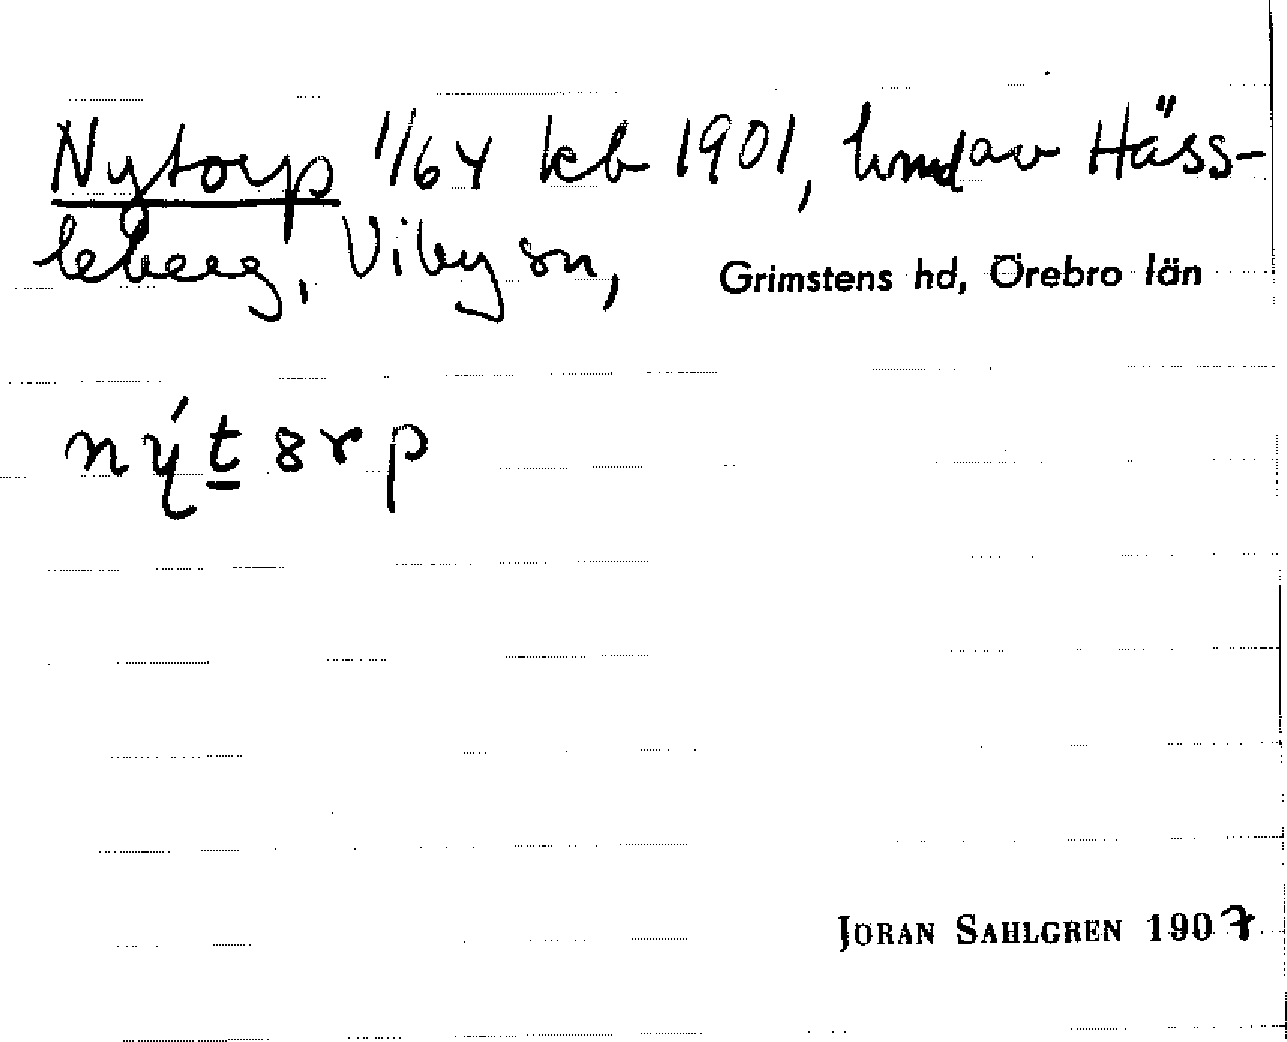 Nytorp 1/64 kb 1901, hmdav Häss-
leberg, Viby sn, Grimstens hd, Örebro län
nýt8rp
JÖRAN SAHLGREN 1907